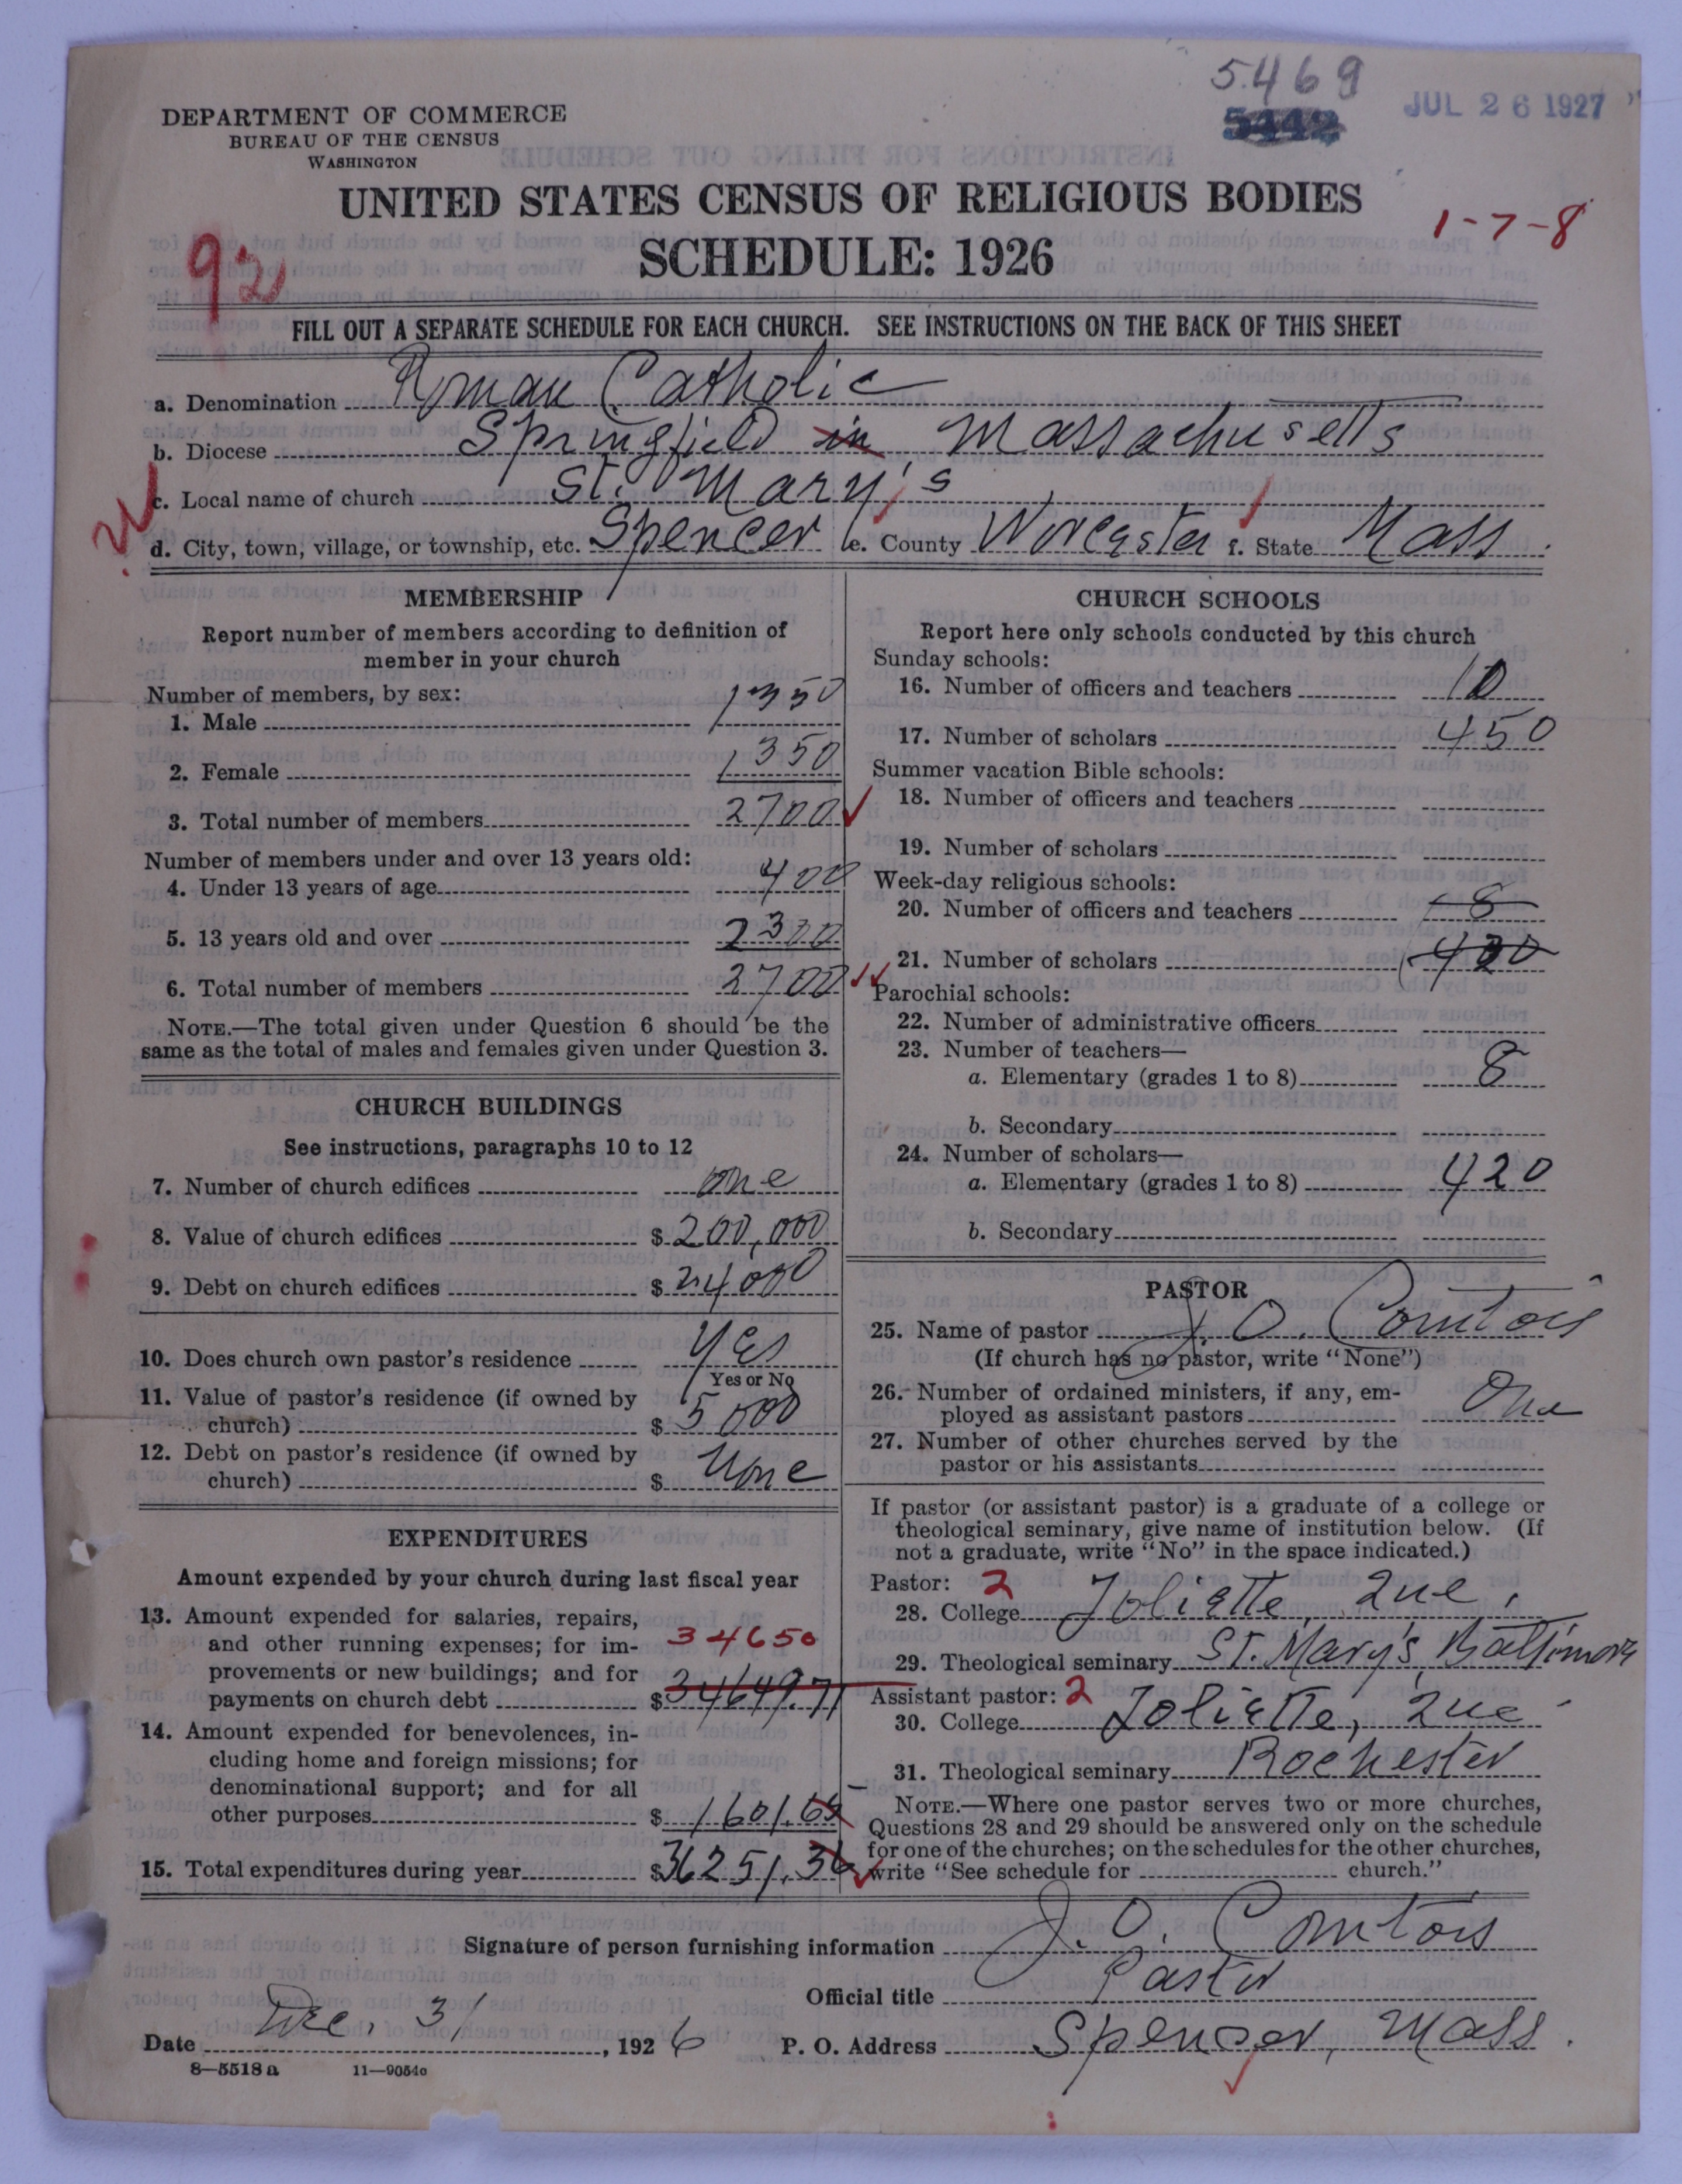 5469
5442
JUL 26 1927
DEPARTMENT OF COMMERCE
BUREAU OF THE CENSUS
WASHINGTON
UNITED STATES CENSUS OF RELIGIOUS BODIES
1-7-8
92
SCHEDULE: 1926
FILL OUT A SEPARATE SCHEDULE FOR EACH CHURCH. SEE INSTRUCTIONS ON THE BACK OF THIS SHEET
a. Denomination Roman Catholic
b. Diocese Springfield in, Massachusetts
c. Local name of church St. Mary's
d. City, town, village, or township, etc. Spencer e. County Worcester f. State Mass.
MEMBERSHIP
Report number of members according to definition of
member in your church
Number of members, by sex:
1. Male 1350
2. Female 1350
3. Total number of members 2700
Number of members under and over 13 years old:
4. Under 13 years of age 400
5. 13 years old and over 2300
6. Total number of members 2700
NOTE.—The total given under Question 6 should be the
same as the total of males and females given under Question 3.
CHURCH BUILDINGS
See instructions, paragraphs 10 to 12
7. Number of church edifices one
8. Value of church edifices $ 200,000
9. Debt on church edifices $ 24000
10. Does church own pastor's residence Yes
Yes or No
11. Value of pastor's residence (if owned by
church) $ 5000
12. Debt on pastor's residence (if owned by
church) $ None
EXPENDITURES
Amount expended by your church during last fiscal year
13. Amount expended for salaries, repairs,
and other running expenses; for im- 34650
provements or new buildings; and for
payments on church debt $ 34649.71
14. Amount expended for benevolences, in-
cluding home and foreign missions; for
denominational support; and for all
other purposes $ 1601.65
15. Total expenditures during year $ 36251.36
CHURCH SCHOOLS
Report here only schools conducted by this church
Sunday schools:
16. Number of officers and teachers 10
17. Number of scholars 450
Summer vacation Bible schools:
18. Number of officers and teachers
19. Number of scholars
Week-day religious schools:
20. Number of officers and teachers 8
21. Number of scholars 420
Parochial schools:
22. Number of administrative officers
23. Number of teachers—
a. Elementary (grades 1 to 8) 8
b. Secondary
24. Number of scholars—
a. Elementary (grades 1 to 8) 420
b. Secondary
PASTOR
25. Name of pastor J. O. Comtois
(If church has no pastor, write "None")
26. Number of ordained ministers, if any, em-
ployed as assistant pastors One
27. Number of other churches served by the
pastor or his assistants
If pastor (or assistant pastor) is a graduate of a college or
theological seminary, give name of institution below. (If
not a graduate, write "No" in the space indicated.)
Pastor: 2
28. College Joliette, Que.
29. Theological seminary St. Mary's, Baltimore
Assistant pastor: 2
30. College Joliette, Que
31. Theological seminary Rochester
NOTE.—Where one pastor serves two or more churches,
Questions 28 and 29 should be answered only on the schedule
for one of the churches; on the schedules for the other churches,
write "See schedule for church."
Signature of person furnishing information J. O. Comtois
Official title Pastor
Date Dec. 31, 1926 P. O. Address Spencer, Mass.
8—5518a 11—9054a